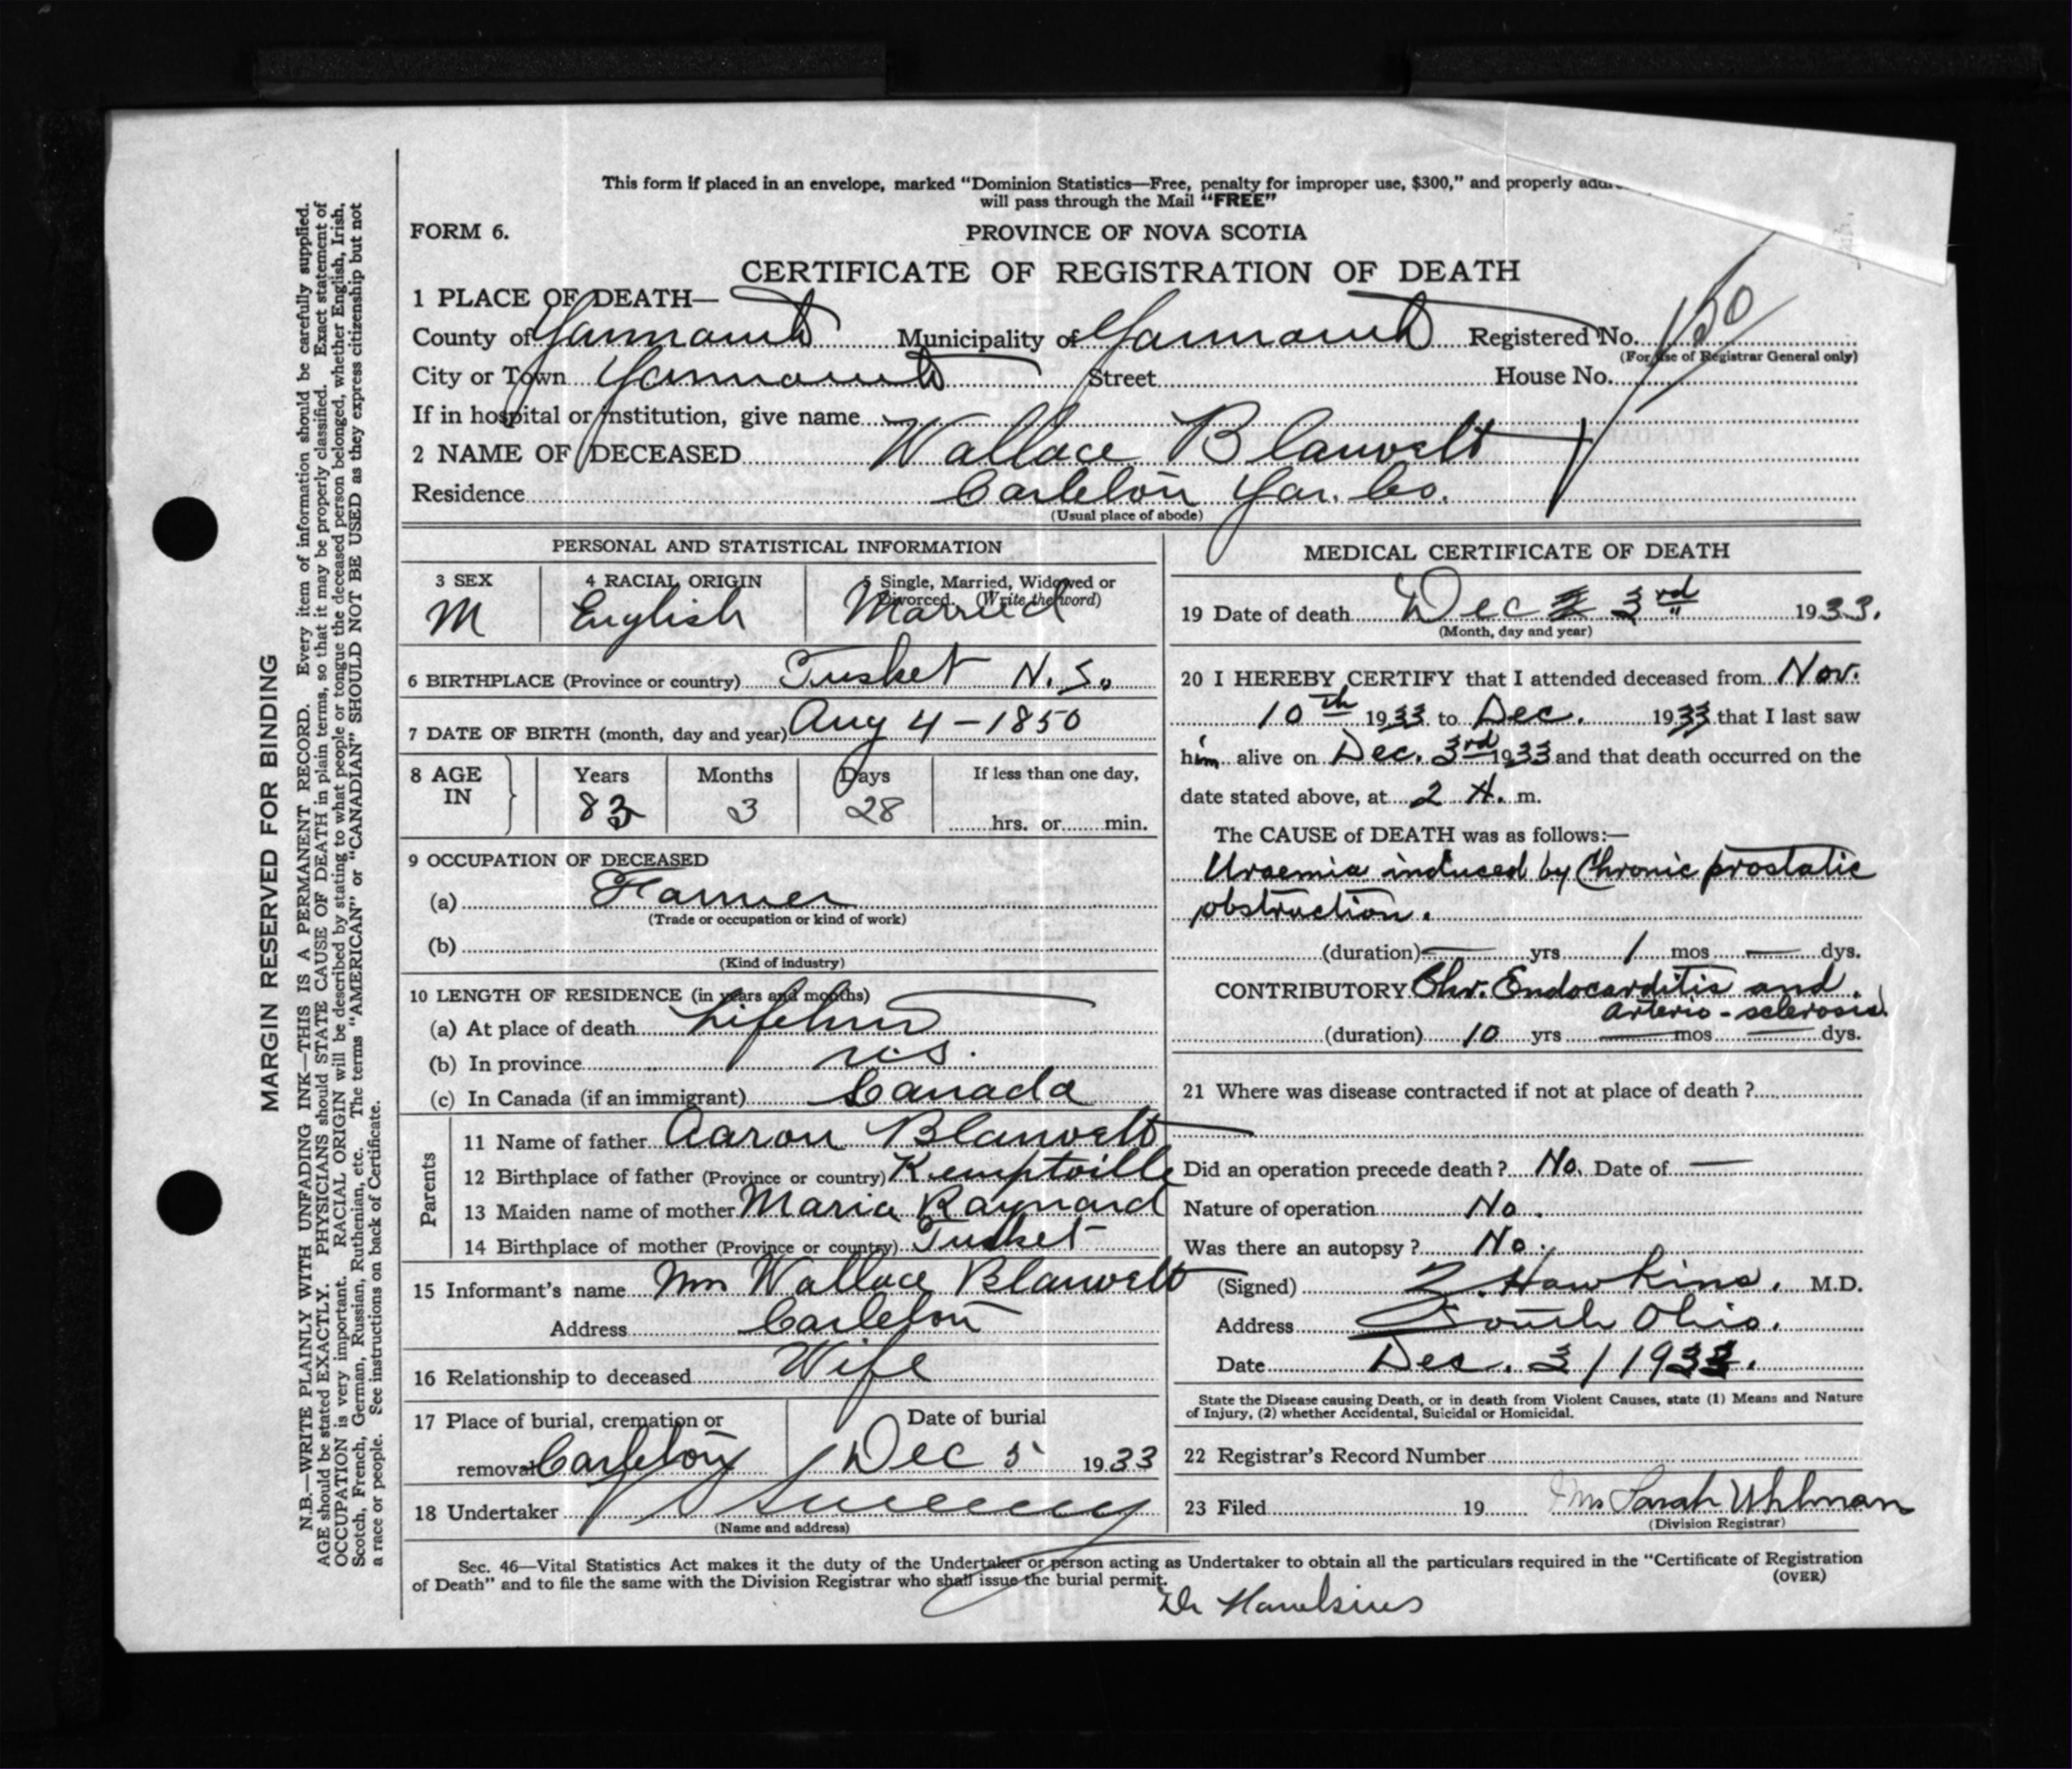 This form if placed in an envelope, marked “Dominion Statistics—Free, penalty for improper use, $300,” and properly
will pass through the Mail “FREE”
FORM 6.
PROVINCE OF NOVA SCOTIA
CERTIFICATE OF REGISTRATION OF DEATH
1 PLACE OF DEATH—
County of Yarmouth Municipality of Yarmouth Registered No.
(For use of Registrar General only)
City or Town Yarmouth Street House No.
If in hospital or institution, give name
2 NAME OF DECEASED Wallace Blauvelt
Residence Carleton Yar. Co.
(Usual place of abode)
PERSONAL AND STATISTICAL INFORMATION
3 SEX
M
4 RACIAL ORIGIN
English
5 Single, Married, Widowed or
Divorced. (Write the word)
Married
6 BIRTHPLACE (Province or country) Tusket N.S.
7 DATE OF BIRTH (month, day and year) Aug 4 - 1850
8 AGE IN
Years Months Days If less than one day,
83 3 28 hrs. or min.
9 OCCUPATION OF DECEASED
(a) Farmer
(Trade or occupation or kind of work)
(b)
(Kind of industry)
10 LENGTH OF RESIDENCE (in years and months)
(a) At place of death Lifetime
(b) In province N.S.
(c) In Canada (if an immigrant) Canada
Parents
11 Name of father Aaron Blauvelt
12 Birthplace of father (Province or country) Kemptville
13 Maiden name of mother Maria Raynard
14 Birthplace of mother (Province or country) Tusket
15 Informant's name Mrs Wallace Blauvelt
Address Carleton
16 Relationship to deceased Wife
17 Place of burial, cremation or
removal Carleton
Date of burial
Dec 5 1933
18 Undertaker Sweeney
(Name and address)
MEDICAL CERTIFICATE OF DEATH
19 Date of death Dec 3rd 1933.
(Month, day and year)
20 I HEREBY CERTIFY that I attended deceased from Nov.
10th 1933 to Dec. 1933 that I last saw
him alive on Dec. 3rd 1933 and that death occurred on the
date stated above, at 2 A. m.
The CAUSE of DEATH was as follows:—
Uraemia induced by Chronic prostatic
obstruction.
(duration) — yrs 1 mos — dys.
CONTRIBUTORY Chr. Endocarditis and
Arterio-sclerosis
(duration) 10 yrs — mos — dys.
21 Where was disease contracted if not at place of death ?
Did an operation precede death ? No. Date of —
Nature of operation No.
Was there an autopsy ? No.
(Signed) Z. Hawkins. M.D.
Address South Ohio.
Date Dec. 3/1933.
State the Disease causing Death, or in death from Violent Causes, state (1) Means and Nature
of Injury, (2) whether Accidental, Suicidal or Homicidal.
22 Registrar's Record Number
23 Filed 19 Mrs Sarah Uhlman
(Division Registrar)
Sec. 46—Vital Statistics Act makes it the duty of the Undertaker or person acting as Undertaker to obtain all the particulars required in the “Certificate of Registration
of Death” and to file the same with the Division Registrar who shall issue the burial permit.
(OVER)
Dr Hawkins
MARGIN RESERVED FOR BINDING
N.B.—WRITE PLAINLY WITH UNFADING INK—THIS IS A PERMANENT RECORD. Every item of information should be carefully supplied.
AGE should be stated EXACTLY. PHYSICIANS should STATE CAUSE OF DEATH in plain terms, so that it may be properly classified. Exact statement of
OCCUPATION is very important. RACIAL ORIGIN will be described by stating to what people or tongue the deceased person belonged, whether English, Irish,
Scotch, French, German, Russian, Ruthenian, etc. The terms “AMERICAN” or “CANADIAN” SHOULD NOT BE USED as they express citizenship but not
a race or people. See instructions on back of Certificate.